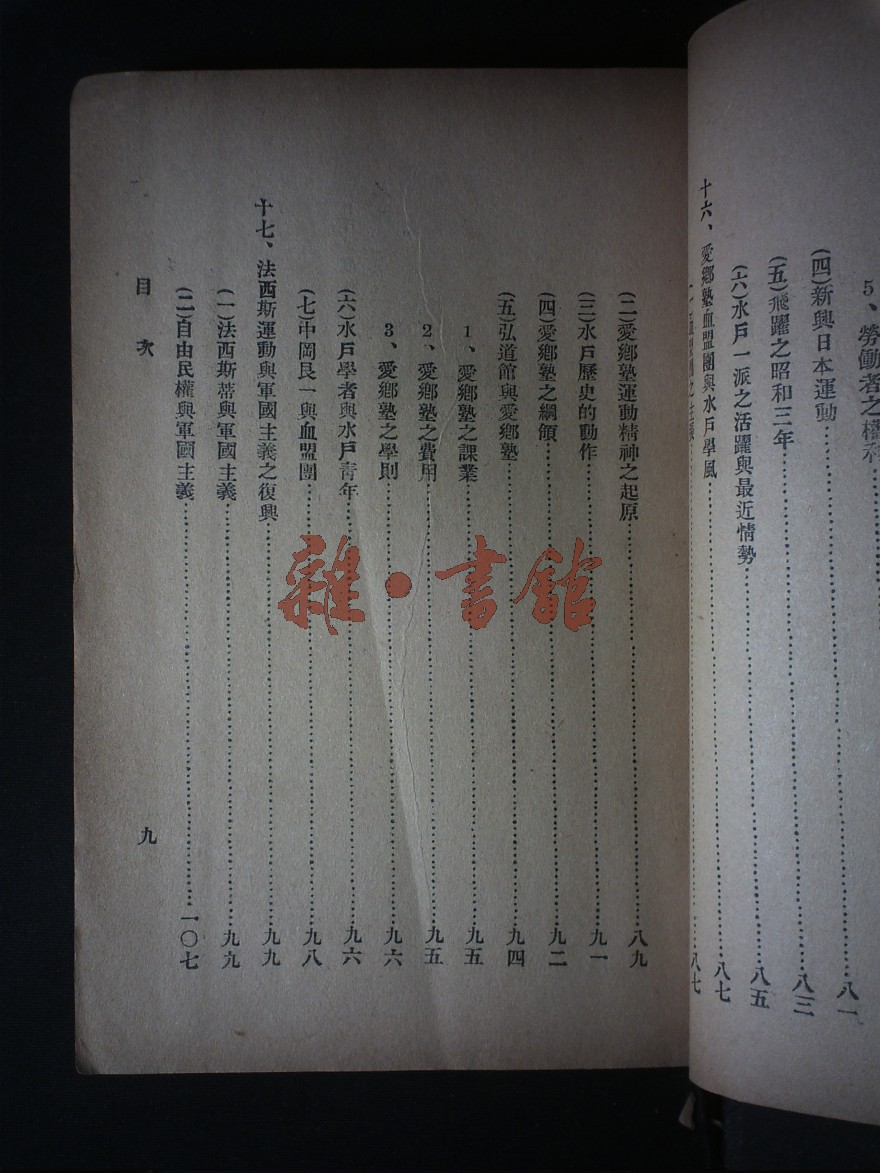 5、勞働者之權利…………八一
(四)新興日本運動…………八三
(五)飛躍之昭和三年
(六)水戶一派之活躍與最近情勢…………八五
十六、愛鄉塾血盟團與水戶學風…………八七
八七
(二)愛鄉塾運動精神之起原…………八九
(三)水戶歷史的動作…………九一
(四)愛鄉塾之綱領…………九二
(五)弘道館與愛鄉塾…………九四
1、愛鄉塾之課業…………九五
2、愛鄉塾之費用…………九五
3、愛鄉塾之學則…………九六
(六)水戶學者與水戶青年…………九六
(七)中岡艮一與血盟團…………九八
十七、法西斯運動與軍國主義之復興…………九九
(一)法西斯蒂與軍國主義…………九九
(二)自由民權與軍國主義…………一〇七
目次
九
雜·書館